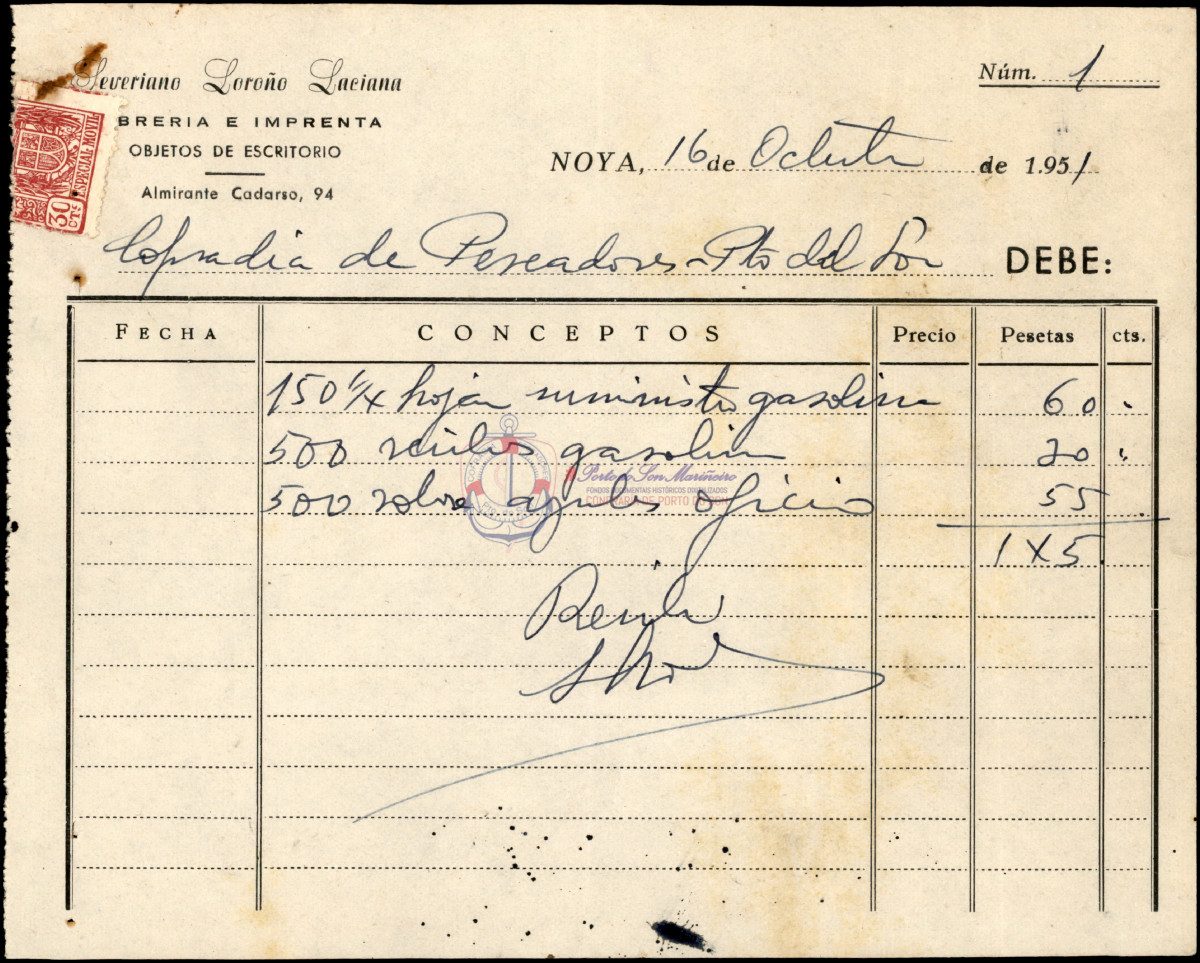 Severiano Loroño Laciana
BRERIA E IMPRENTA
OBJETOS DE ESCRITORIO
Almirante Cadarso, 94
ESPECIAL MOVIL
30 CTS
Núm. 1
NOYA, 16 de Octubre de 1.951
Cofradia de Pescadores - Pto del Son DEBE:
FECHA CONCEPTOS Precio Pesetas cts.
150 1/4 hoja suministro gasolina 60 "
500 recibos gasolina 20 "
500 sobres azules oficio 55
1X5
Porto do Son Mariñeiro
FONDOS DOCUMENTAIS HISTÓRICOS DIGITALIZADOS
CONFRARÍA DE PORTO DO SON
Recibi